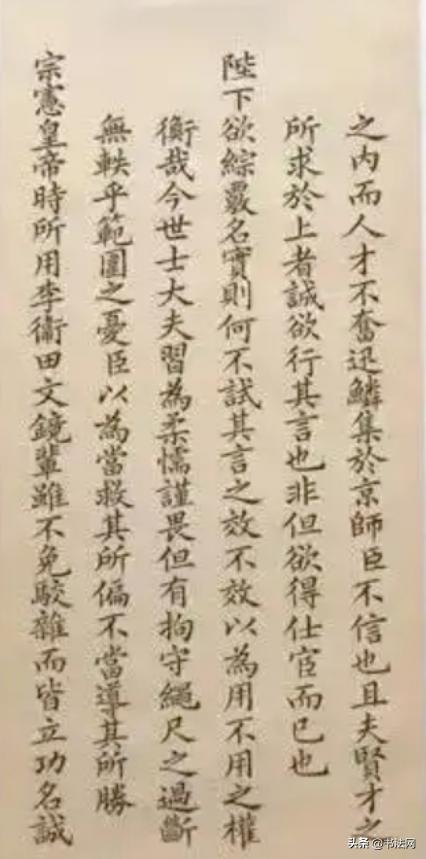 之内而人才不奮迅鱗集於京師臣不信也且夫賢才之
所求於上者誠欲行其言也非但欲得仕宦而已也
陛下欲綜覈名實則何不試其言之效不效以為用不用之權
衡哉今世士大夫習為柔懦謹畏但有拘守繩尺之過斷
無軼乎範圍之憂臣以為當救其所偏不當導其所勝
宗憲皇帝時所用李衞田文鏡輩雖不免駮雜而皆立功名誠
头条@书法网